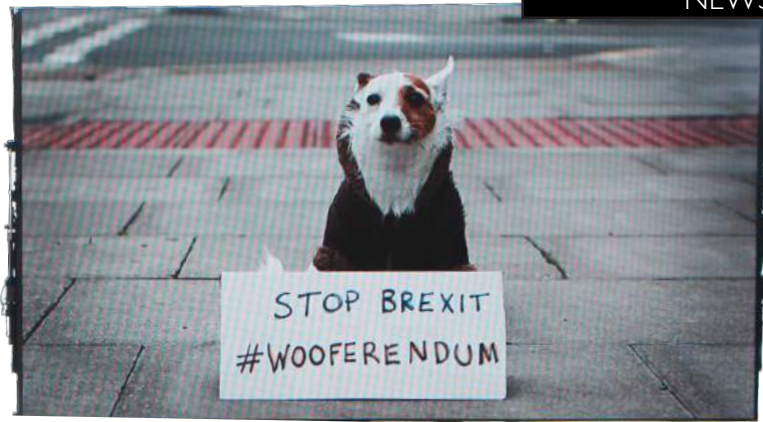 NEWS
STOP BREXIT
#WOOFERENDUM